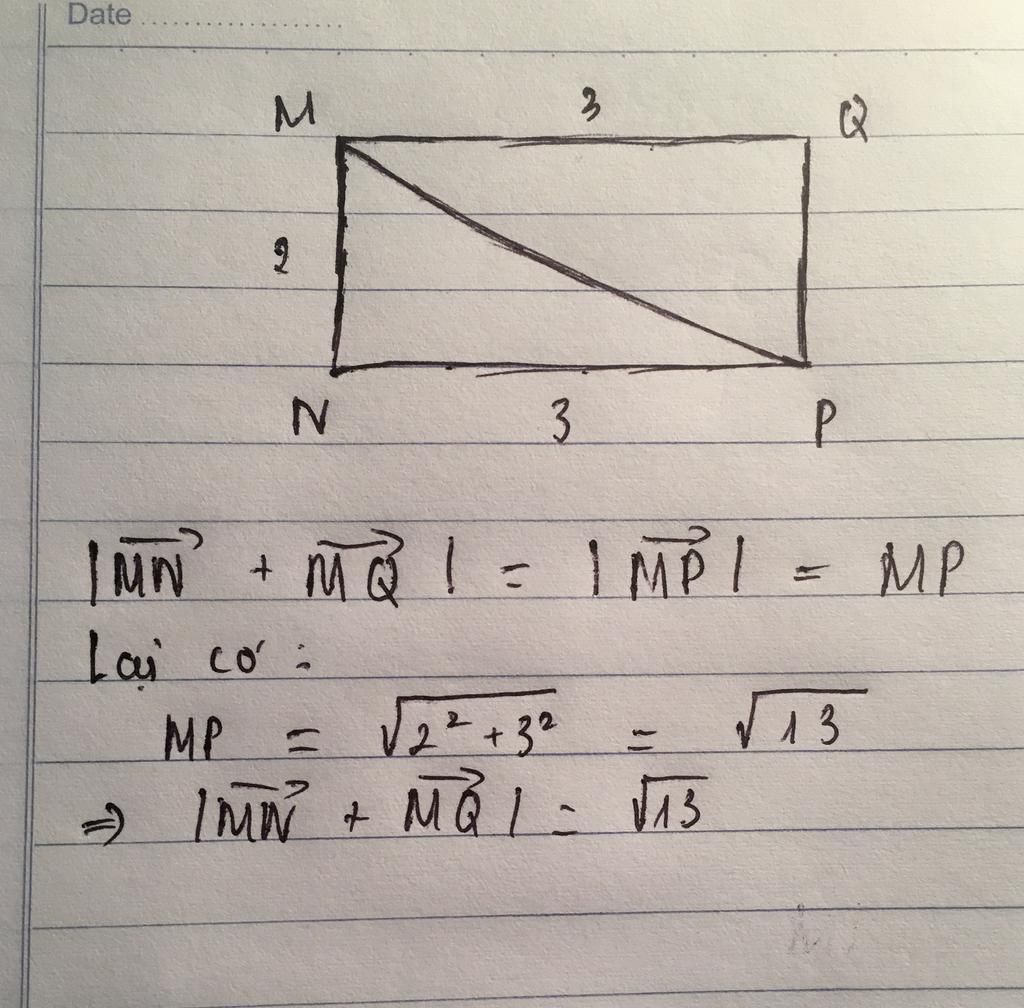 Date ....................
M 3 Q
2
N 3 P
|$\overrightarrow{MN}$ + $\overrightarrow{MQ}$| = |$\overrightarrow{MP}$| = MP
Lại có :
MP = $\sqrt{2^2 + 3^2}$ = $\sqrt{13}$
⇒ |$\overrightarrow{MN}$ + $\overrightarrow{MQ}$| = $\sqrt{13}$